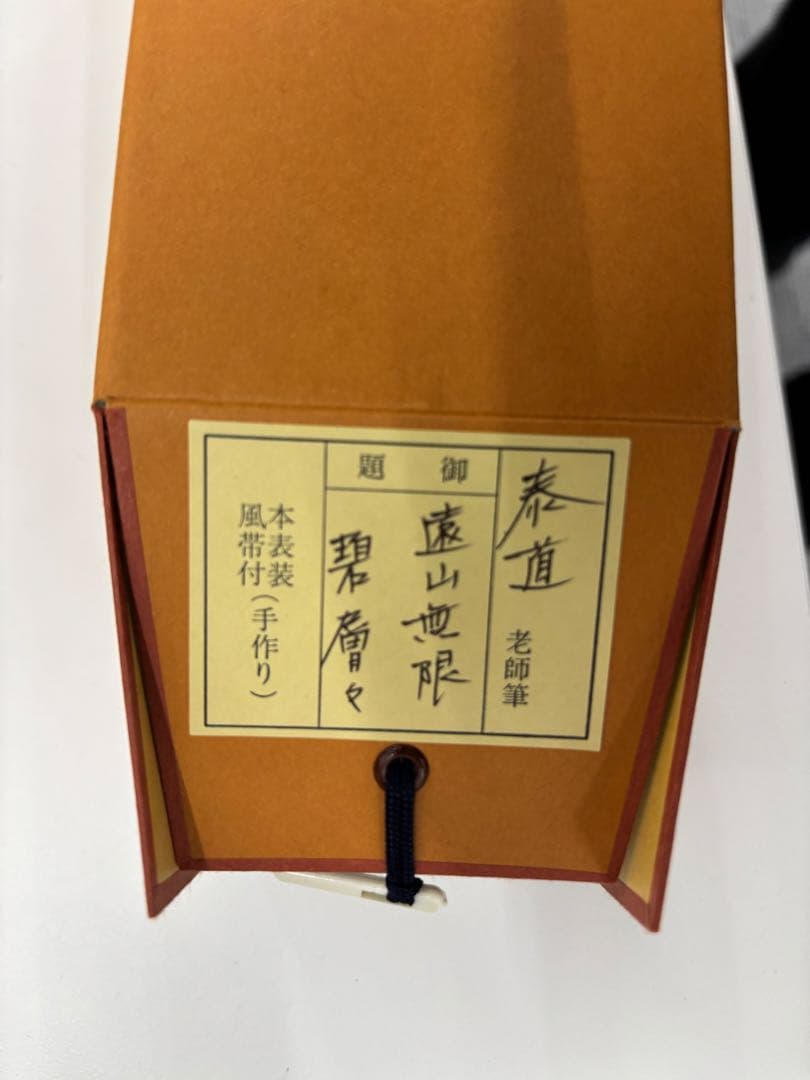 泰道 老師筆
御題
遠山無限
碧層々
本表装
風帯付(手作り)